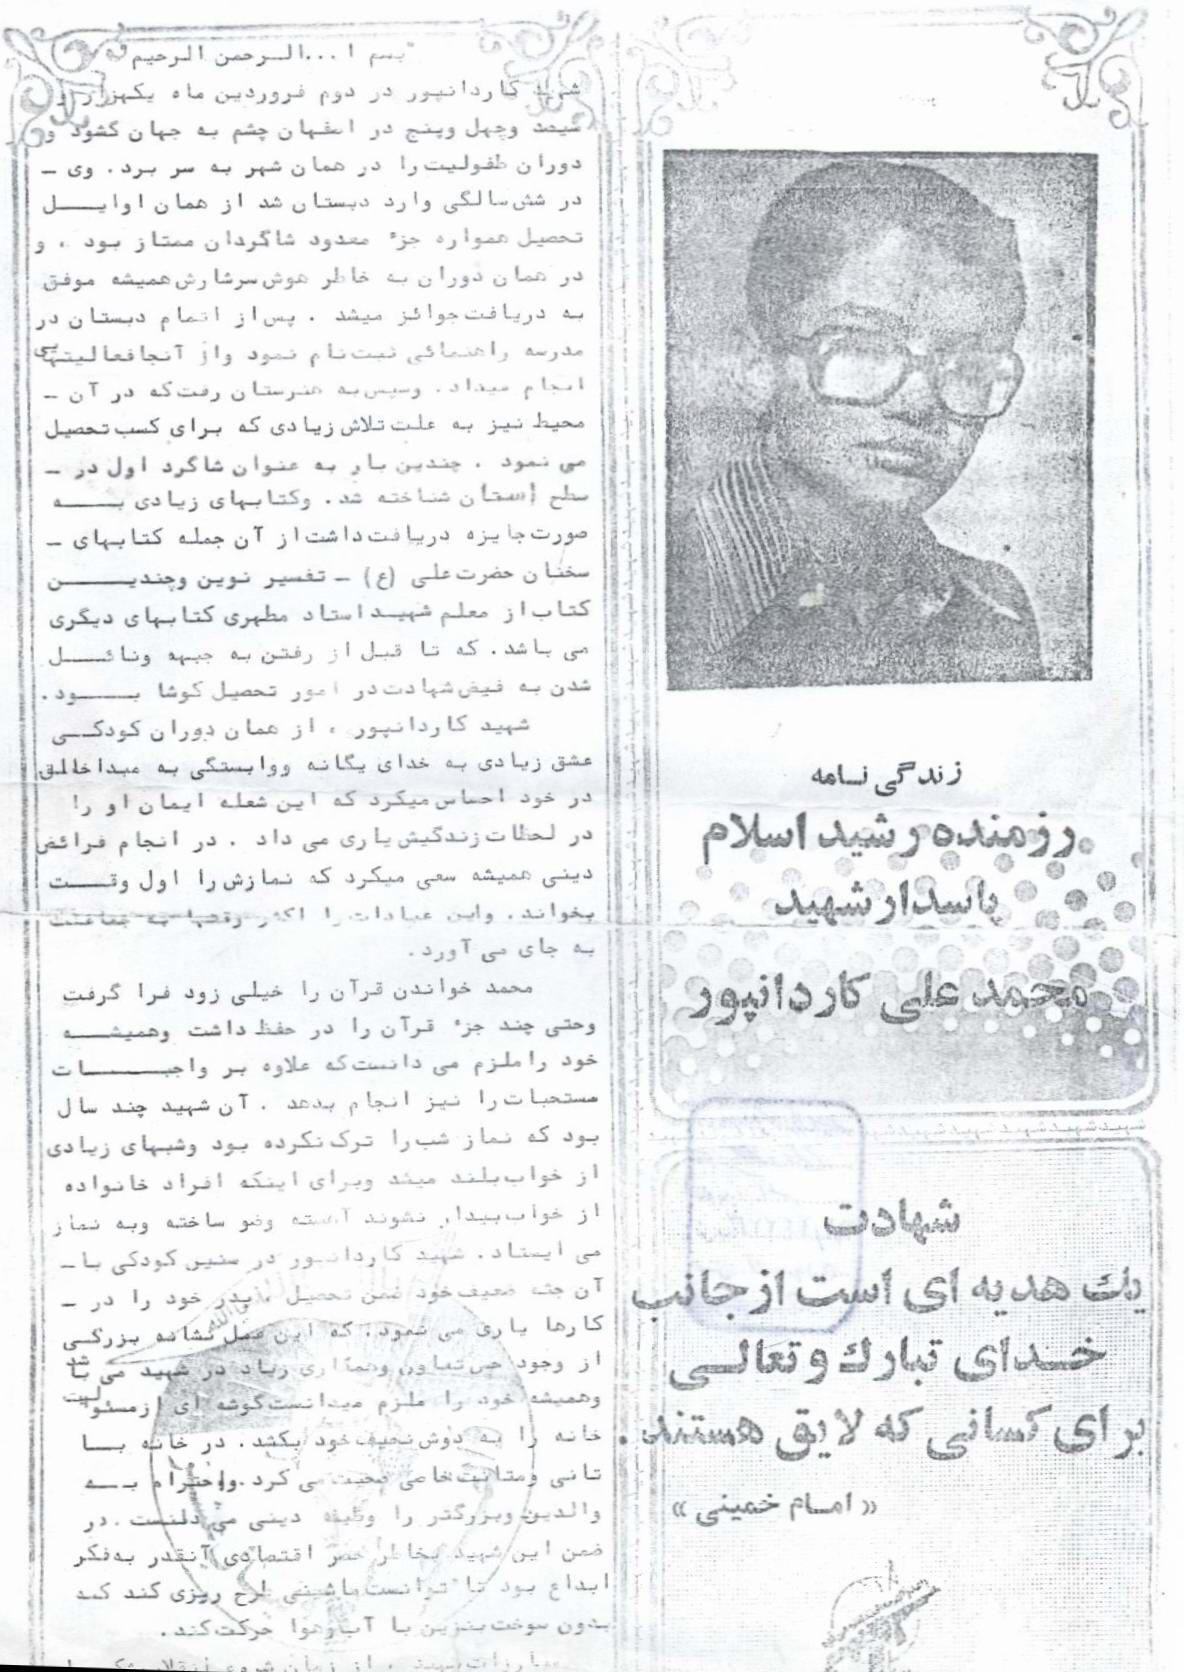 زندگی نامه
رزمنده رشید اسلام
پاسدار شهید
محمد علی کاردانپور
شهادت
یك هدیه ای است از جانب
خدای تبارك و تعالی
برای کسانی که لایق هستند.
« امام خمینی »
"بسم ا...الرحمن الرحیم"
شهید کاردانپور در دوم فروردین ماه یکهزار و
سیصد وچهل وپنج در اصفهان چشم به جهان گشود و
دوران طفولیت را در همان شهر به سر برد. وی -
در شش سالگی وارد دبستان شد از همان اوایل
تحصیل همواره جزء معدود شاگردان ممتاز بود ، و
در همان دوران به خاطر هوش سرشارش همیشه موفق
به دریافت جوائز میشد . پس از اتمام دبستان در
مدرسه راهنمائی ثبت نام نمود واز آنجا فعالیتهایی
انجام میداد. وسپس به هنرستان رفت که در آن -
محیط نیز به علت تلاش زیادی که برای کسب تحصیل
می نمود . چندین بار به عنوان شاگرد اول در -
سطح استان شناخته شد. وکتابهای زیادی به
صورت جایزه دریافت داشت از آن جمله کتابهای -
سخنان حضرت علی (ع) - تفسیر نوین وچندین
کتاب از معلم شهید استاد مطهری کتابهای دیگری
می باشد. که تا قبل از رفتن به جبهه ونائل
شدن به فیض شهادت در امور تحصیل کوشا بود.
شهید کاردانپور ، از همان دوران کودکی
عشق زیادی به خدای یگانه ووابستگی به مبدا خالق
در خود احساس میکرد که این شعله ایمان او را
در لحظات زندگیش یاری می داد . در انجام فرائض
دینی همیشه سعی میکرد که نمازش را اول وقت
بخواند. واین عبادات را اکثر وقتها به جماعت
به جای می آورد.
محمد خواندن قرآن را خیلی زود فرا گرفت
وحتی چند جزء قرآن را در حفظ داشت وهمیشه
خود را ملزم می دانست که علاوه بر واجبات
مستحبات را نیز انجام بدهد . آن شهید چند سال
بود که نماز شب را ترک نکرده بود وشبهای زیادی
از خواب بلند میشد وبرای اینکه افراد خانواده
از خواب بیدار نشوند آهسته وضو ساخته وبه نماز
می ایستاد. شهید کاردانپور در سنین کودکی با -
آن جثه ضعیف خود ضمن تحصیل ، پدر خود را در -
کارها یاری می نمود. که این عمل نشانه بزرگی
از وجود حس تعاون وهمکاری زیاد در شهید می باشد
وهمیشه خود را ملزم میدانست گوشه ای از مسئولیت
خانه را به دوش نحیف خود بکشد. در خانه با
تانی ومتانت خاصی صحبت می کرد. واحترام به
والدین وبزرگتر را وظیفه دینی می دانست. در
ضمن این شهید بخاطر حصر اقتصادی آنقدر به فکر
ابداع بود تا توانست ماشینی طرح ریزی کند که
بدون سوخت بنزین با آب وهوا حرکت کند.
از زمان شروع انقلاب